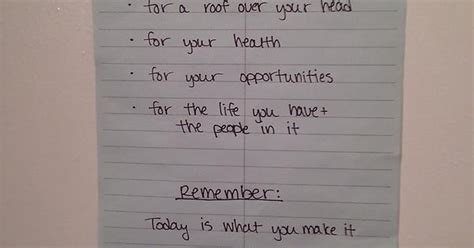 · for a roof over your head
· for your health
· for your opportunities
· for the life you have +
the people in it
Remember:
Today is what you make it